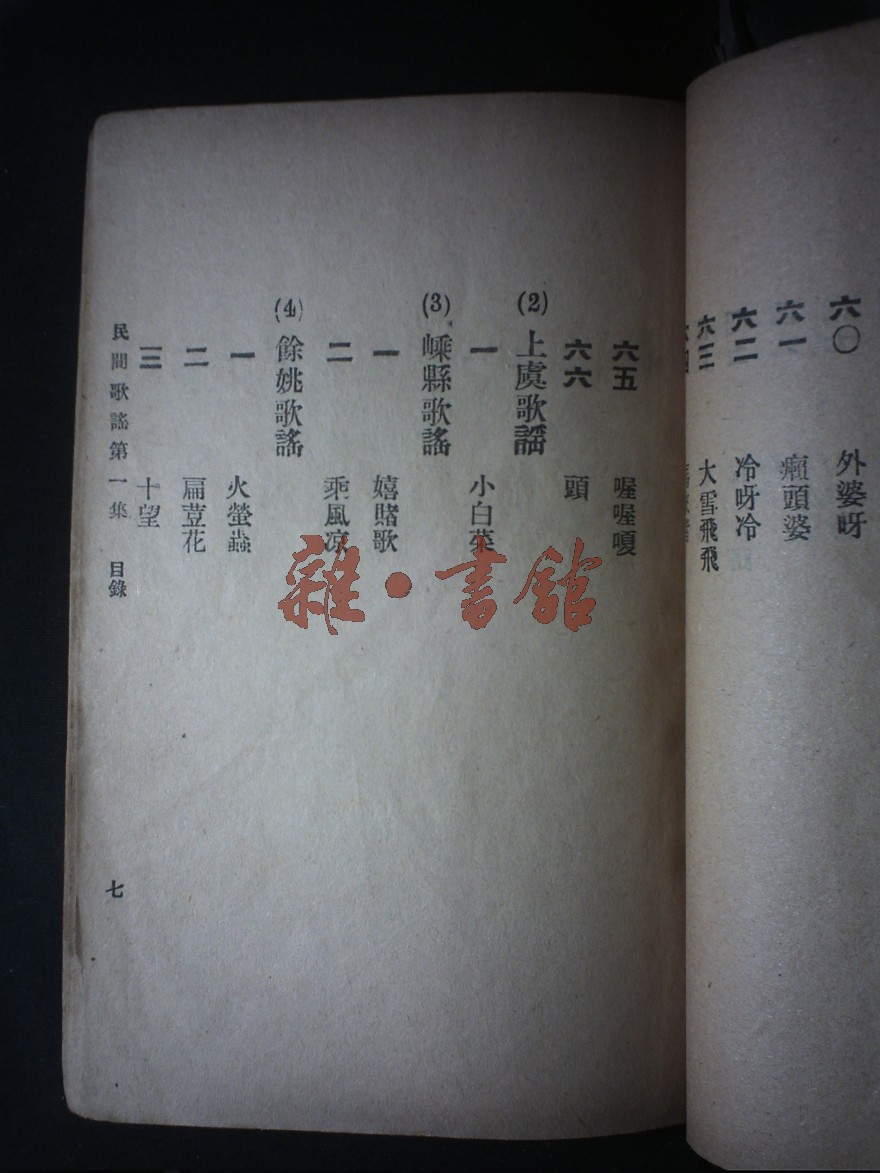 六〇 外婆呀
六一 癩頭婆
六二 冷呀冷
六三 大雪飛飛
六五 喔喔嗄
六六 頭
(2) 上虞歌謠
一 小白菜
(3) 嵊縣歌謠
一 嬉賭歌
二 乘風凉
(4) 餘姚歌謠
一 火螢蟲
二 扁荳花
三 十望
民間歌謠第一集 目錄
七
雜·書館